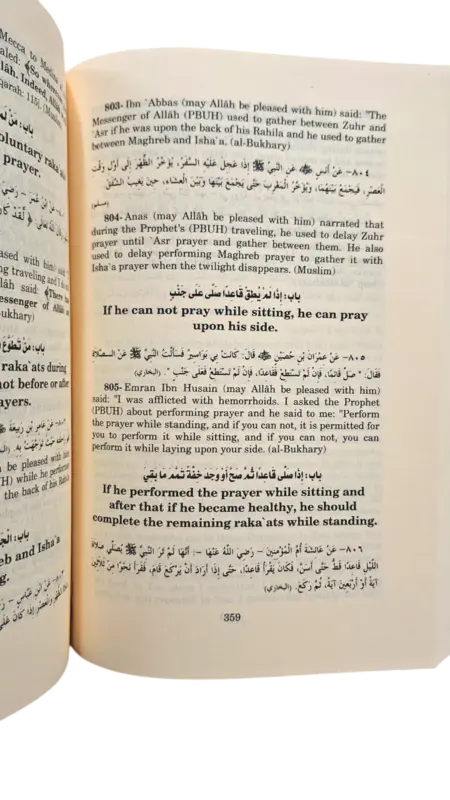 Mecca to Medina
Allâh. Indeed Allâh
qarah: 115]. (Muslim)
oluntary raka`ats
prayer.
raka`ats during
not before or after
ayers.
be pleased with
while he performed
the back of his Rahila
eb and Isha`a
803- Ibn `Abbas (may Allâh be pleased with him) said: "The
Messenger of Allâh (PBUH) used to gather between Zuhr and
`Asr if he was upon the back of his Rahila and he used to gather
between Maghreb and Isha`a." (al-Bukhary)
٨٠٤- عَنْ أَنَسٍ ﷺ عَنِ النَّبِيِّ ﷺ إِذَا عَجِلَ عَلَيْهِ السَّفَرُ، يُؤَخِّرُ الظُّهْرَ إِلَى أَوَّلِ وَقْتِ
الْعَصْرِ، فَيَجْمَعُ بَيْنَهُمَا، وَيُؤَخِّرُ الْمَغْرِبَ حَتَّى يَجْمَعَ بَيْنَهَا وَبَيْنَ الْعِشَاءِ، حِينَ يَغِيبُ الشَّفَقُ
(مسلم)
804- Anas (may Allâh be pleased with him) narrated that
during the Prophet's (PBUH) traveling, he used to delay Zuhr
prayer until `Asr prayer and gather between them. He also
used to delay performing Maghreb prayer to gather it with
Isha`a prayer when the twilight disappears. (Muslim)
باب: إِذَا لَمْ يُطِقْ قَاعِدًا صَلَّى عَلَى جَنْبٍ
If he can not pray while sitting, he can pray
upon his side.
٨٠٥- عَنْ عِمْرَانَ بْنِ حُصَيْنٍ ﷺ قَالَ: كَانَتْ بِي بَوَاسِيرُ فَسَأَلْتُ النَّبِيَّ ﷺ عَنِ الصَّلاةِ
فَقَالَ: " صَلِّ قَائِمًا، فَإِنْ لَمْ تَسْتَطِعْ فَقَاعِدًا، فَإِنْ لَمْ تَسْتَطِعْ فَعَلَى جَنْبٍ ". (البخاري)
805- Emran Ibn Husain (may Allâh be pleased with him)
said: "I was afflicted with hemorrhoids. I asked the Prophet
(PBUH) about performing prayer and he said to me: "Perform
the prayer while standing, and if you can not, it is permitted for
you to perform it while sitting, and if you can not, you can
perform it while laying upon your side. (al-Bukhary)
باب: إِذَا صَلَّى قَاعِدًا ثُمَّ صَحَّ أَوْ وَجَدَ خِفَّةً تَمَّمَ مَا بَقِيَ
If he performed the prayer while sitting and
after that if he became healthy, he should
complete the remaining raka`ats while standing.
٨٠٦- عَنْ عَائِشَةَ أُمِّ الْمُؤْمِنِينَ - رَضِيَ اللَّهُ عَنْهَا -: أَنَّهَا لَمْ تَرَ النَّبِيَّ ﷺ يُصَلِّي صَلاةَ
اللَّيْلِ قَاعِدًا، قَطُّ حَتَّى أَسَنَّ، فَكَانَ يَقْرَأُ قَاعِدًا، حَتَّى إِذَا أَرَادَ أَنْ يَرْكَعَ قَامَ، فَقَرَأَ نَحْوًا مِنْ ثَلاثِينَ
آيَةً أَوْ أَرْبَعِينَ آيَةً، ثُمَّ رَكَعَ. (البخاري)
359